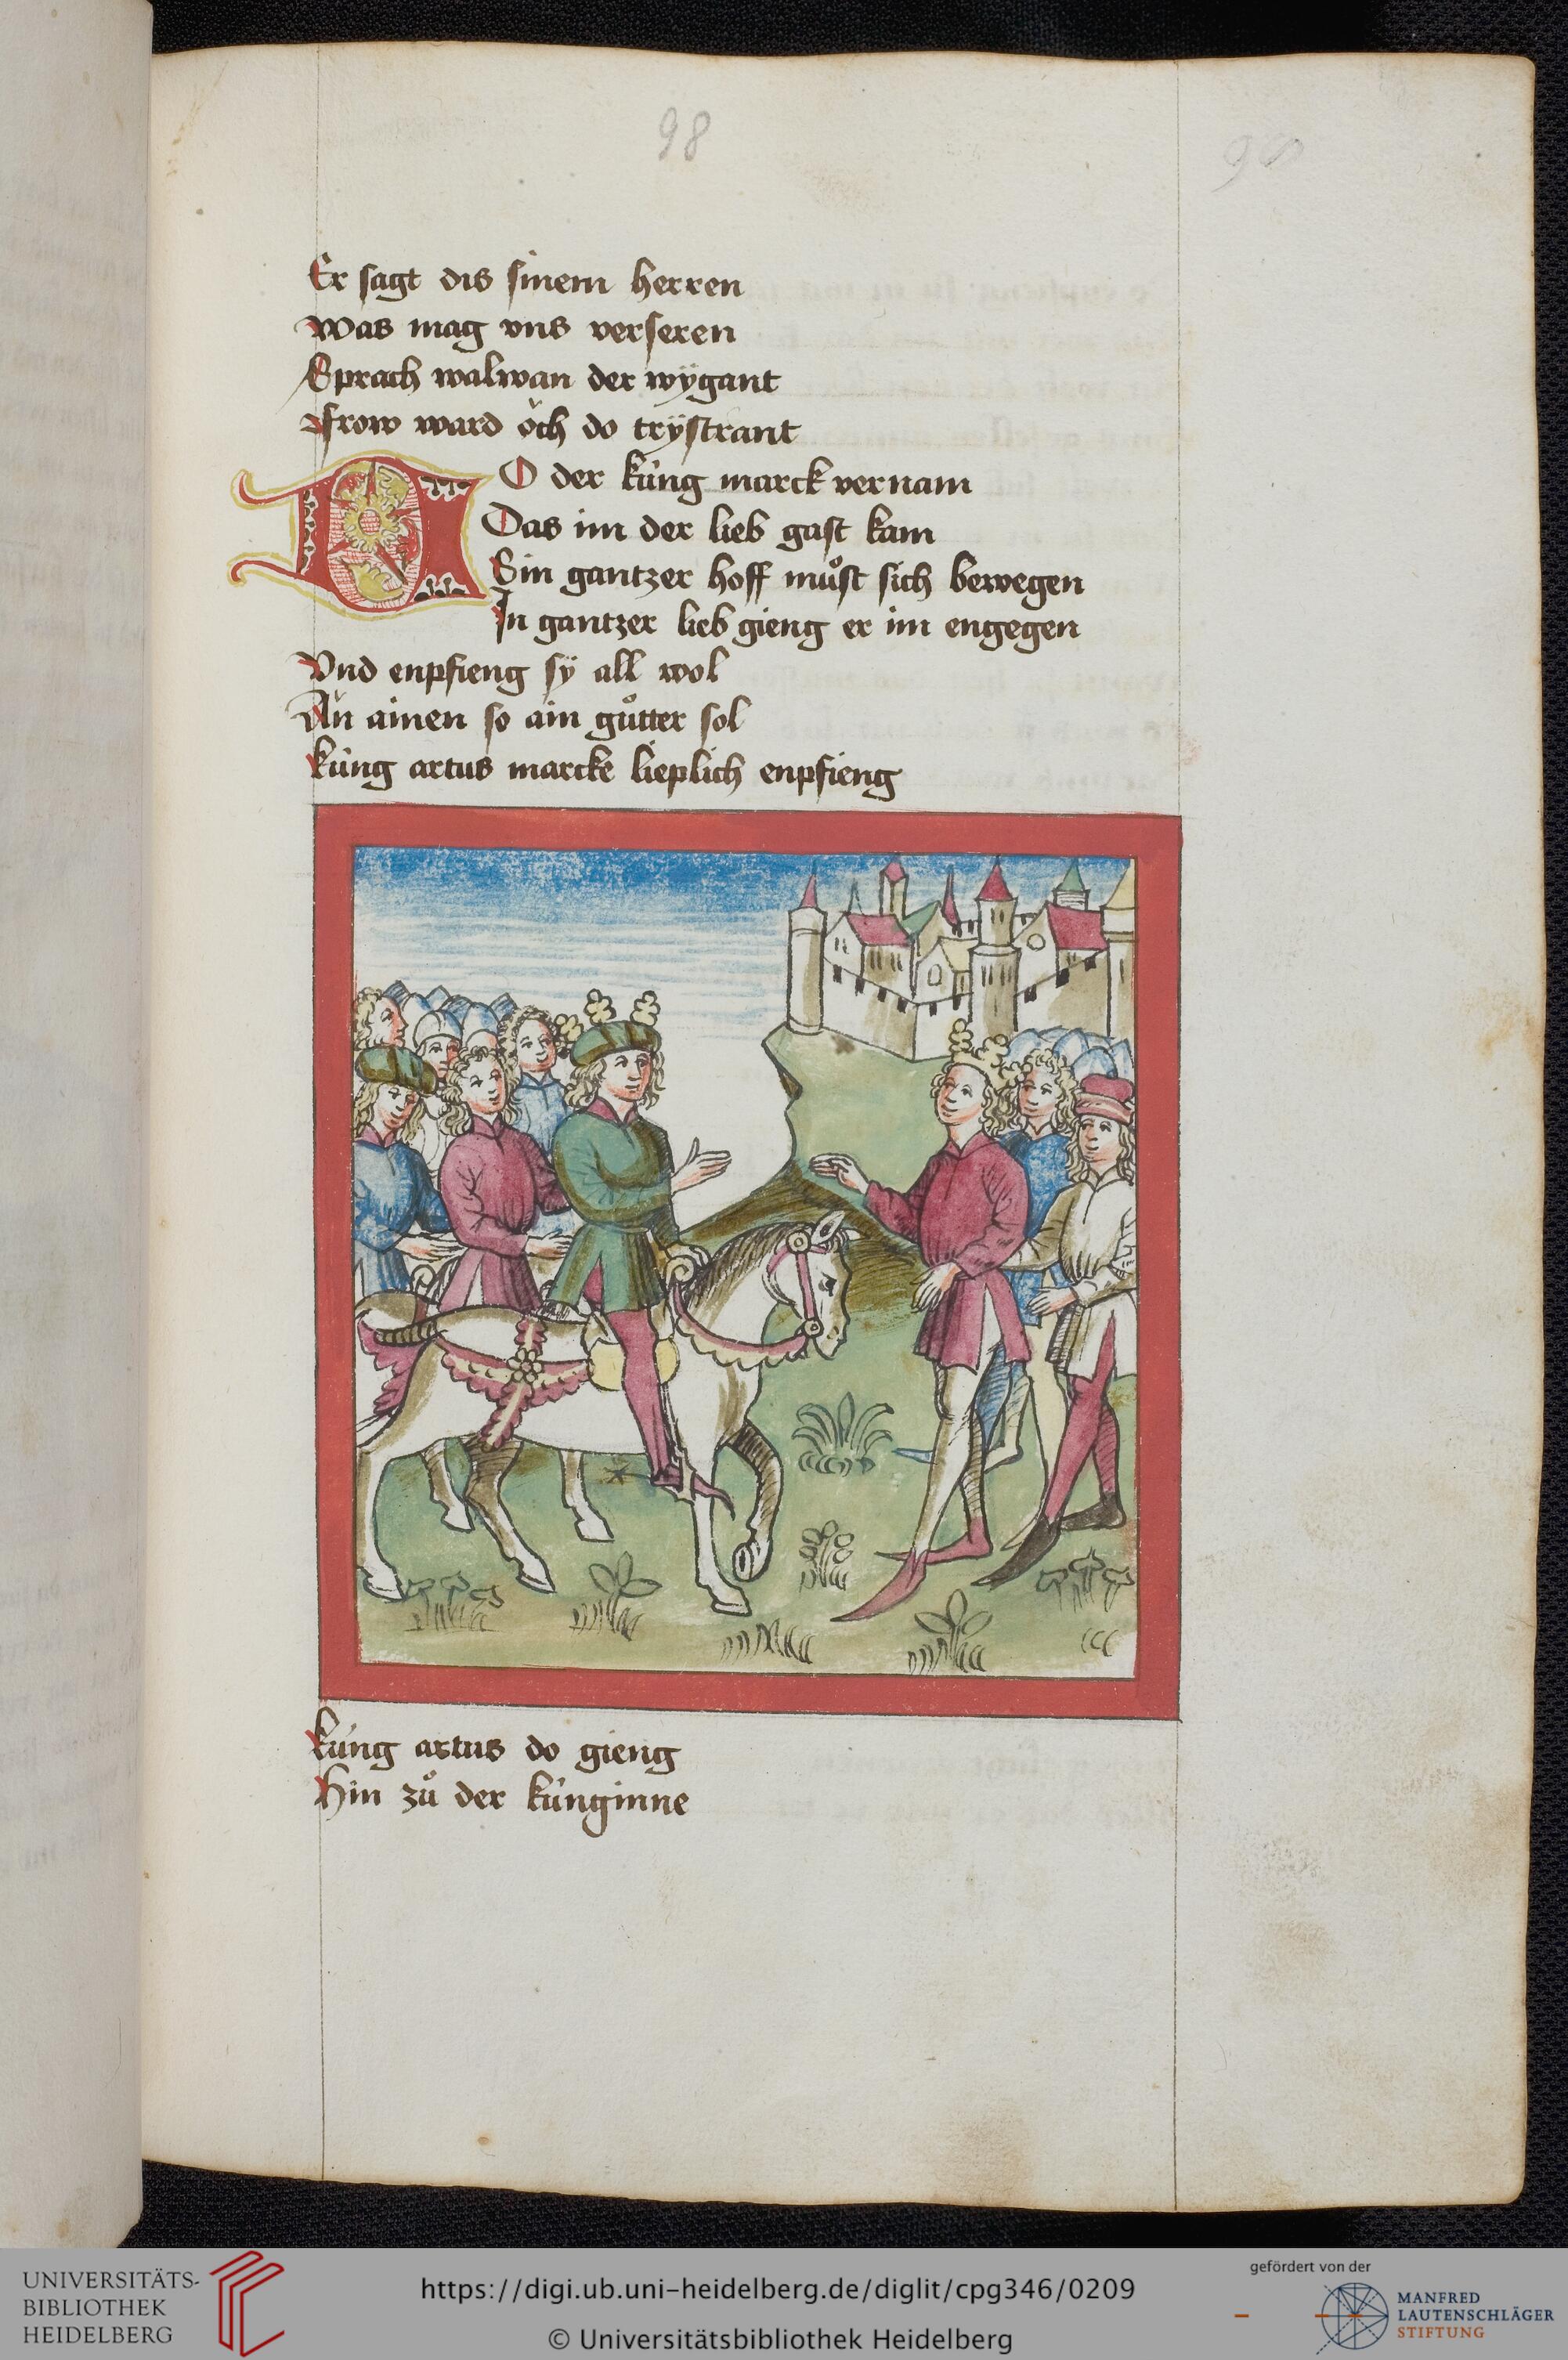 98
98
Er sagt dis sinem herren
Was mag vns verseren
Sprach walwan der wÿgant
Frow ward öch do trÿstrant
DO der küng marck vernam
Das im der lieb gast kam
Sin gantzer hoff müst sich bewegen
In gantzer lieb gieng er im engegen
Vnd enpfieng sÿ all wol
Än ainen so ain gůtter sol
küng artus marcke lieplich enpfieng
küng artus do gieng
Hin zů der künginne
UNIVERSITÄTS-
BIBLIOTHEK
HEIDELBERG
https://digi.ub.uni-heidelberg.de/diglit/cpg346/0209
© Universitätsbibliothek Heidelberg
gefördert von der
MANFRED
LAUTENSCHLÄGER
STIFTUNG